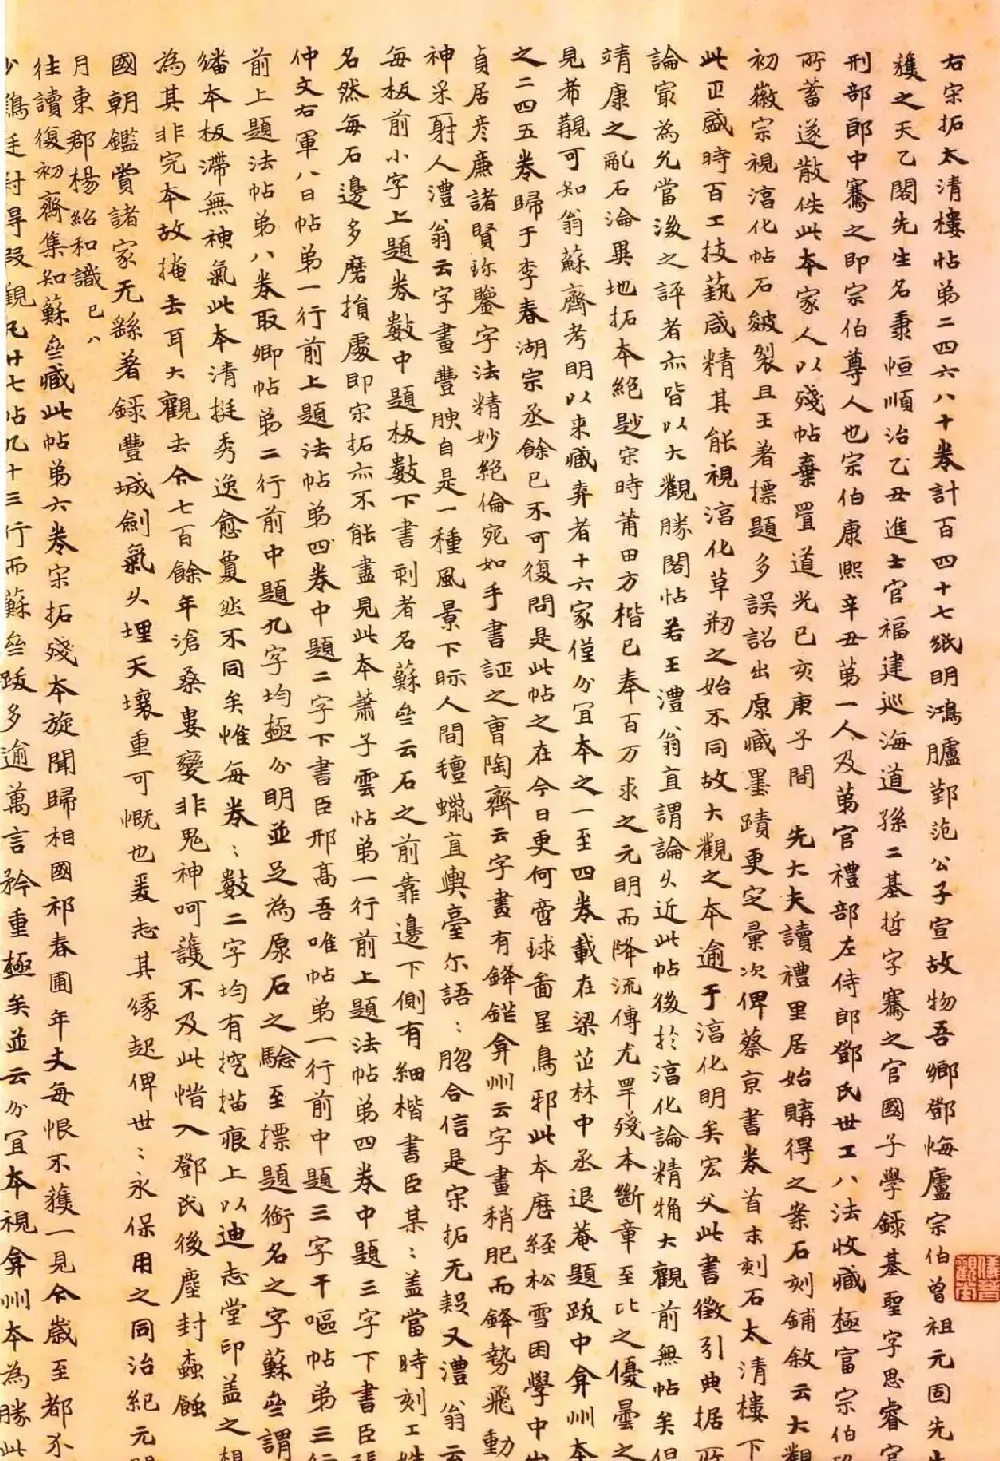 右宋拓太清樓帖弟二四六八十卷計百四十七紙明鴻臚鄞范公子宣故物吾鄉鄧悔廬宗伯曾祖元固先生
獲之天乙閣先生名秉恒順治乙丑進士官福建巡海道孫二基哲字騫之官國子學錄基聖字思睿官
刑部郎中騫之即宗伯尊人也宗伯康熙辛丑第一人及第官禮部左侍郎鄧氏世工八法收臧極富宗伯
所蓄遂散佚此本家人以殘帖棄置道光己亥庚子間 先大夫讀禮里居始購得之案石刻鋪敘云大觀
初徽宗視淳化帖石皴裂且王著標題多誤詔出原臧墨蹟更定彙次俾蔡京書卷首末刻石太清樓下
此正盛時百工技藝咸精其能視淳化草刱之始不同故大觀之本逾于淳化明矣宏父此書徵引典据所
論冣為允當後之評者亦皆以大觀勝閣帖若王澧翁直謂論乆近此帖後於淳化論精犕大觀前無帖矣但
靖康之亂石淪異地拓本絕尟宋時莆田方楷已奉百万求之元明而降流傳尤罕殘本斷章至比之優曇之
見希覯可知翁蘇齋考明以來臧弆者十六家僅分宜本之一至四卷載在梁茝林中丞退菴題跋中弇州本
之二四五卷歸于李春湖宗丞餘已不可復問是此帖之在今日更何啻球啚星鳥邪此本歷經松雪困學中
貞居彦廉諸賢珎鑒字法精妙絕倫宛如手書証之曹陶齋云字書有鋒鍇弇州云字畫稍肥而鋒勢飛動
神采射人澧翁云字畫豐腴自是一種風景下眎人間氊蠟直輿臺尔語:脗合信是宋拓无疑又澧翁云
每板前小字上題卷數中題板數下書刺者名蘇坐云石之前靠邊下側有細楷書臣某:蓋當時刻工姓
名然每石邊多磨損處即宋拓亦不能盡見此本蕭子雲帖弟一行前上題法帖弟四卷中題三字下書臣張
仲文右軍八日帖弟一行前上題法帖弟四卷中題二字下書臣邢高吾唯帖弟一行前中題三字干嘔帖弟三行
前上題法帖弟八卷取卿帖弟二行前中題九字均極分明並足為原石之驗至摽題銜名之字蘇坐謂
繙本板滯無神氣此本清挺秀逸愈覺迥不同矣惟每卷:數二字均有挖描痕上以迪志堂印盖之想
為其非完本故掩去耳大觀去今七百餘年滄桑婁變非鬼神呵護不及此惜入鄧氏後塵封蟲蝕
國朝鑑賞諸家无繇著錄豐城劍氣乆埋天壤重可慨也爰志其緣起俾世:永保用之同治紀元
月東郡楊紹和識 己八
往讀復初齋集知蘇坐臧此帖弟六卷宋拓殘本旋聞歸相國祁春圃年丈每恨不獲一見今歲至都介
少鶴廷尉得叚觀凡廿七帖九十三行而蘇坐跋多逾萬言矜重極矣並云分宜本視弇州本為勝此